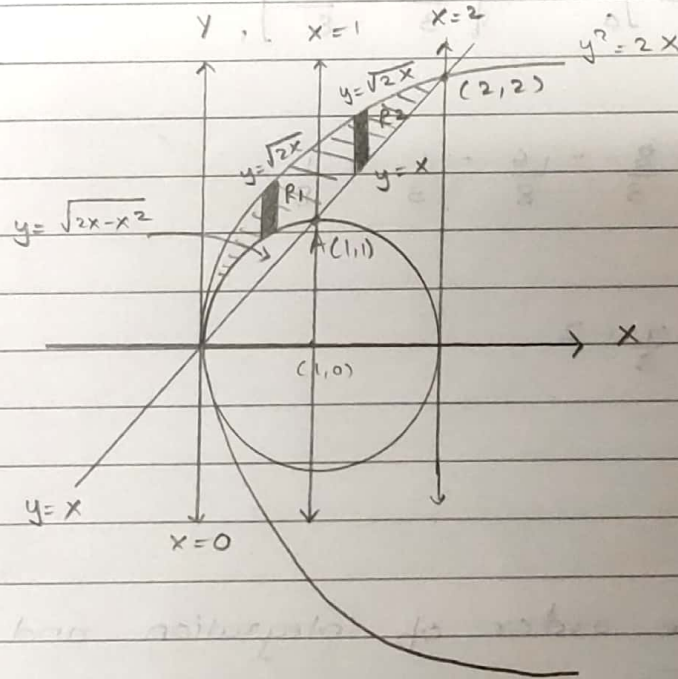 Y
x=1
x=2
y²=2x
y=√2x
(2,2)
R2
y=√2x
y=x
R1
y=√2x-x²
A(1,1)
X
(1,0)
y=x
x=0